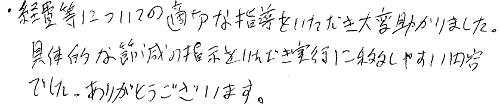 ・経費等についての適切な指導をいただき大変助かりました。
具体的な節減の指示をいただき実行に移しやすい内容
でした。ありがとうございます。